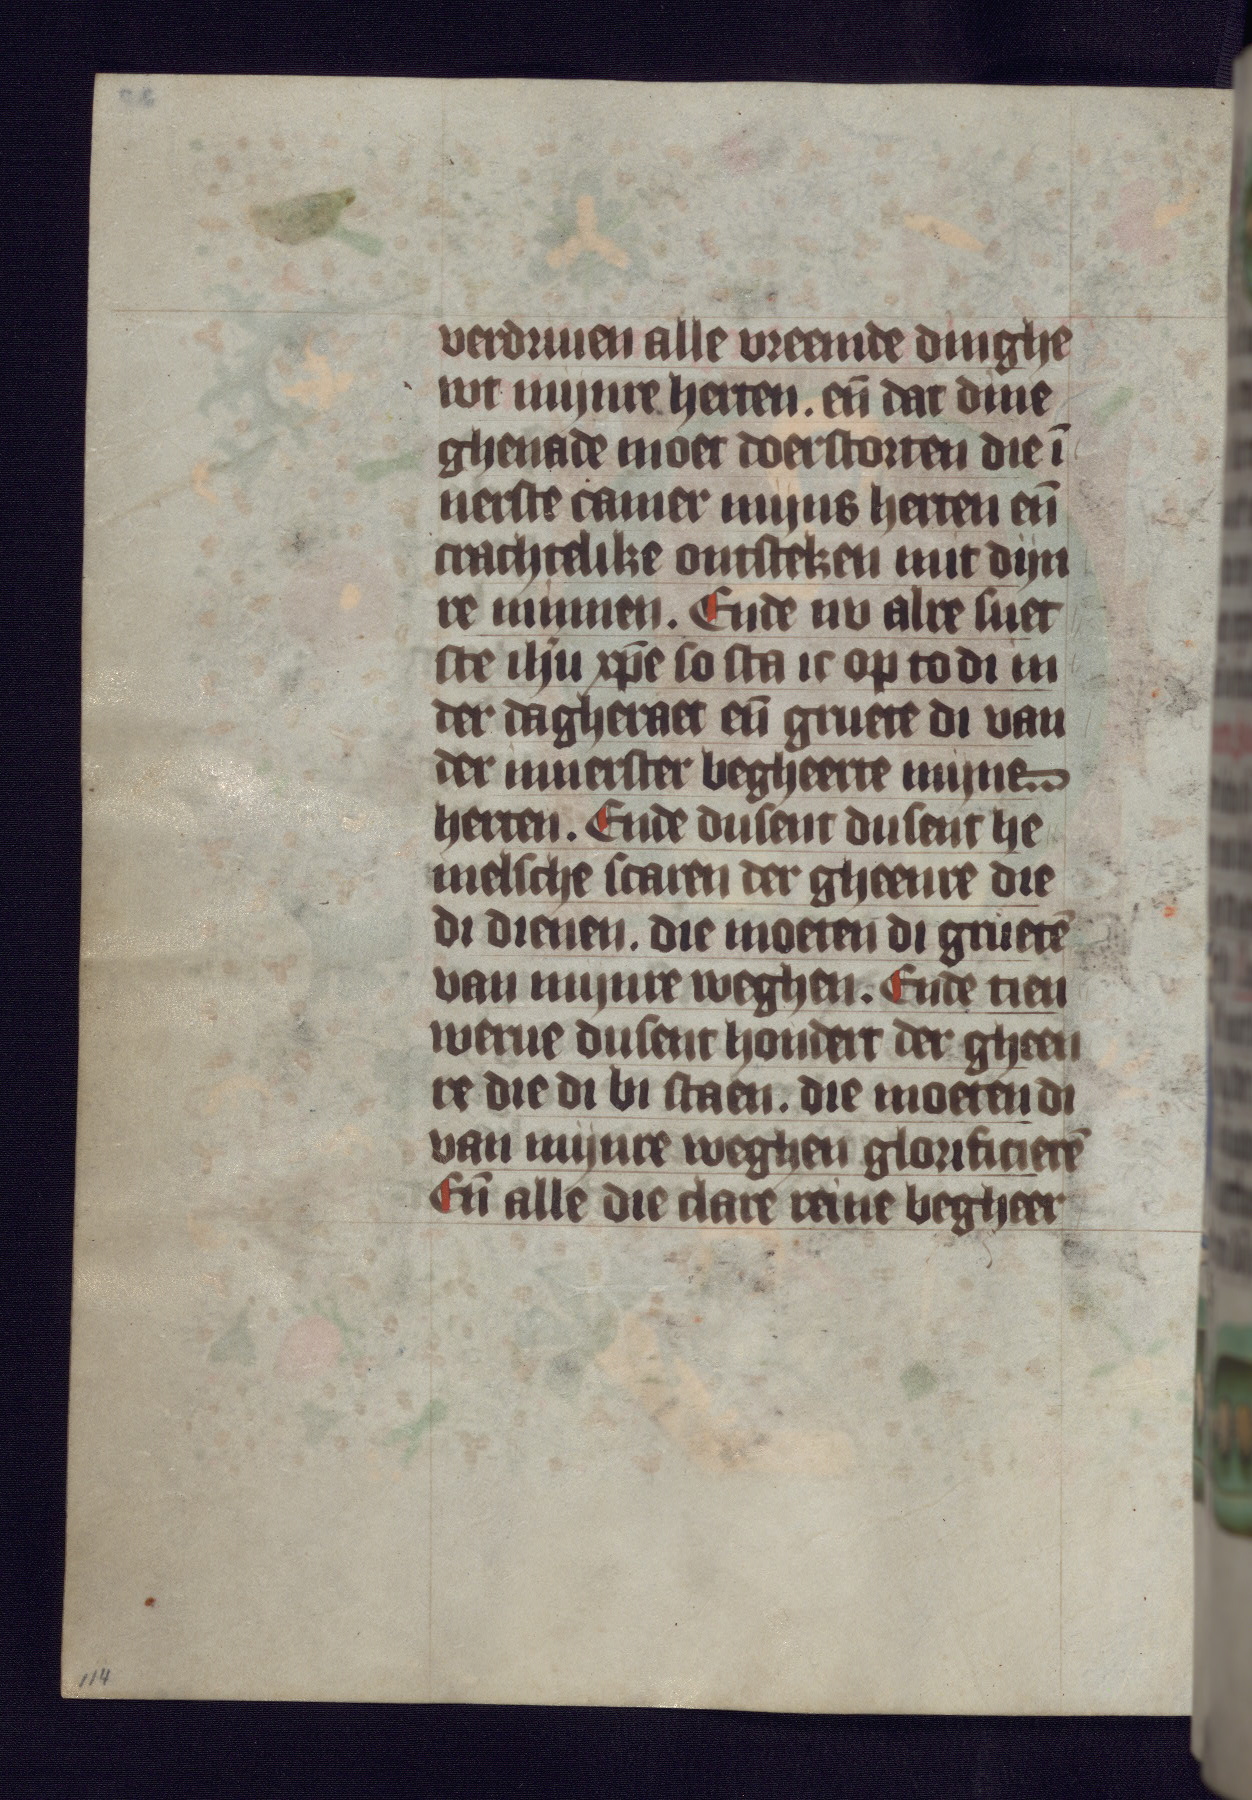 verdriuen alle vreemde dinghe
wt mijnre herten. en̄ dat dine
ghenade moet doerstorten die ī
nerste camer mijns herten en̄
crachtelike ontsteken mit dijn
re minnen. Ende nv alre suet
ste ihū xp̄e so sta ic op to di in
der dagheraet en̄ gruete di van
der innerster begheerte mijns
herten. Ende dusent dusent he
melsche scaren der gheenre die
di dienen. die moeten di gruetē
van mijnre weghen. Ende tien
werue dusent hondert der gheen
re die di bi staen. die moeten di
van mijnre weghen glorificierē
En̄ alle die clare reine begheer
114